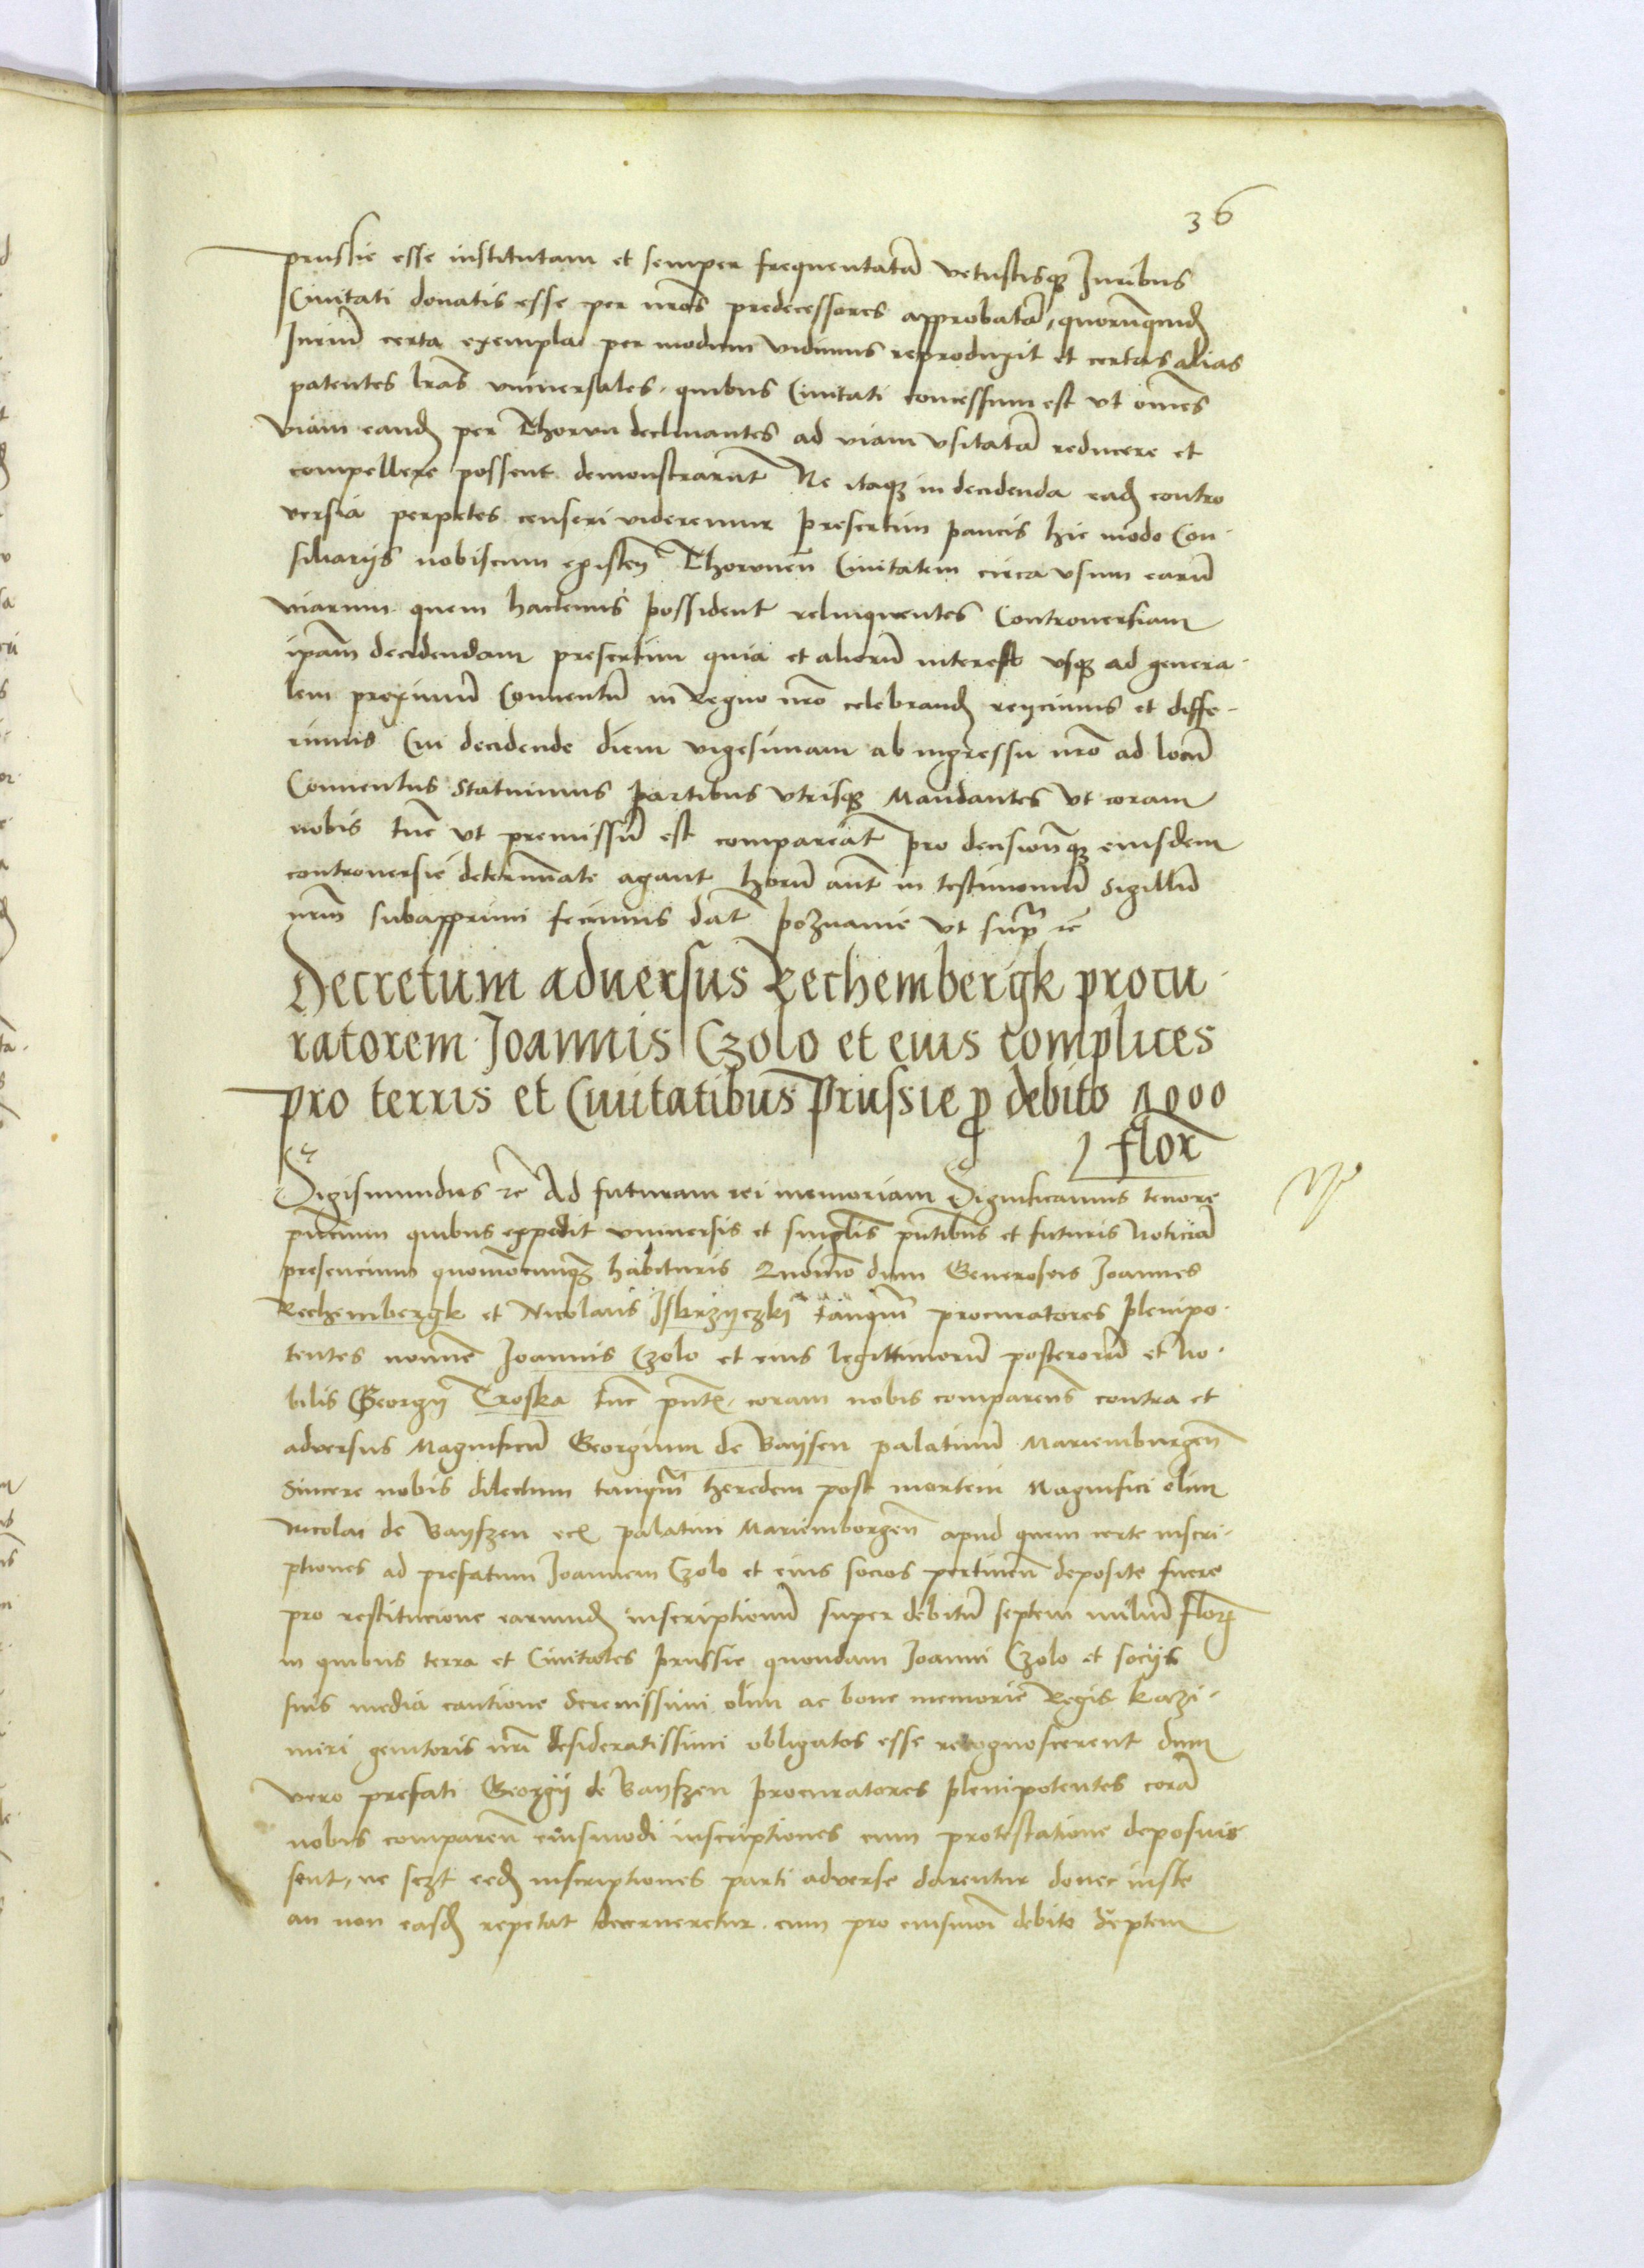 36
prussie esse institutam et semper frequentatā vetustisqꝫ Iuribus
Civitati donatis esse per nros predecessores approbatā, quorūquidꝫ
Iuriū certa exempla per modum vidimus reproduxit et certas alias
patentes lras universales, quibus Civitati concessum est ut omēs
viam eandꝫ per Thorun declinantes ad viam usitatā reducere et
compellere possent demonstrarūt Ne itaqꝫ in decidenda eadꝫ contro
versia perpetes censeri videremur presertim paucis hic modo Con-
siliarijs nobiscum existeñ Thorunen̄ Civitatem circa usum earū
viarum quem hactenus possident relinquentes Controversiam
ip̄am decidendam presertim quia et aliorū interest usqꝫ ad genera-
lem proximū Conventū in Regno nrō celebrandꝫ reijcimus et diffe-
rimus Cui decidende diem vigesimam ab ingressu nrō ad locū
Conventus statuimus partibus utrisqꝫ Mandantes ut coram
nobis tūc ut premissū est compareāt pro decisionēqꝫ eiusdem
controversie determinate agant horū aūt in testimoniū sigillū
nrm̄ subapprimi fecimus dat̄ poznanie ut supra ꝛc̄
Decretum adversus Rechembergk procu-
ratorem Joannis Czolo et eius complices
pro terris et Civitatibus Prussie ꝓ debito 1000
flor̄
Sigismundus ꝛc̄ Ad futuram rei memoriam Significamus tenore
pn̄cium quibus expedit universis et singl̄is pn̄tibus et futuris noticiā
presencium quomōcunqꝫ habituris Quomō dum Generosus Joannes
Rechembergk et Nicolaus Iskrzyczky tanqm̄ procuratores plenipo-
tentes nomīe Joannis Czolo et eius legittimorū posterorū et No-
bilis Georgij Troska tūc pn̄tꝭ coram nobis comparens contra et
adversus Magnificū Georgium de Baysen palatinū Marienburgen̄
Sincere nobis dilectum tanqm̄ heredem post mortem Magnifici olim
Nicolai de Bayszen ecꝭ palatini Mariemborgen̄ apud quem certe inscri-
ptiones ad prefatum Joannem Czolo et eius socios pertinen̄ deposite fuere
pro restitucione earundꝫ inscriptionū super debitū septem miliū flor̄
in quibus terra et Civitates prussie quondam Joanni Czolo et socijs
suis media cautione Serenissimi olim ac bone memorie Regis Kazi-
miri genitoris nrī desideratissimi obligatos esse recognoscerent dum
vero prefati Georgij de Bayszen procuratores plenipotentes corā
nobis comparen̄ eiusmodi inscriptiones cum protestatione deposuis
sent, ne eedꝫ inscriptiones parti adverse darentur donec iuste
an non easdꝫ repetat decerneretur, cum pro eiusmōi debito septem